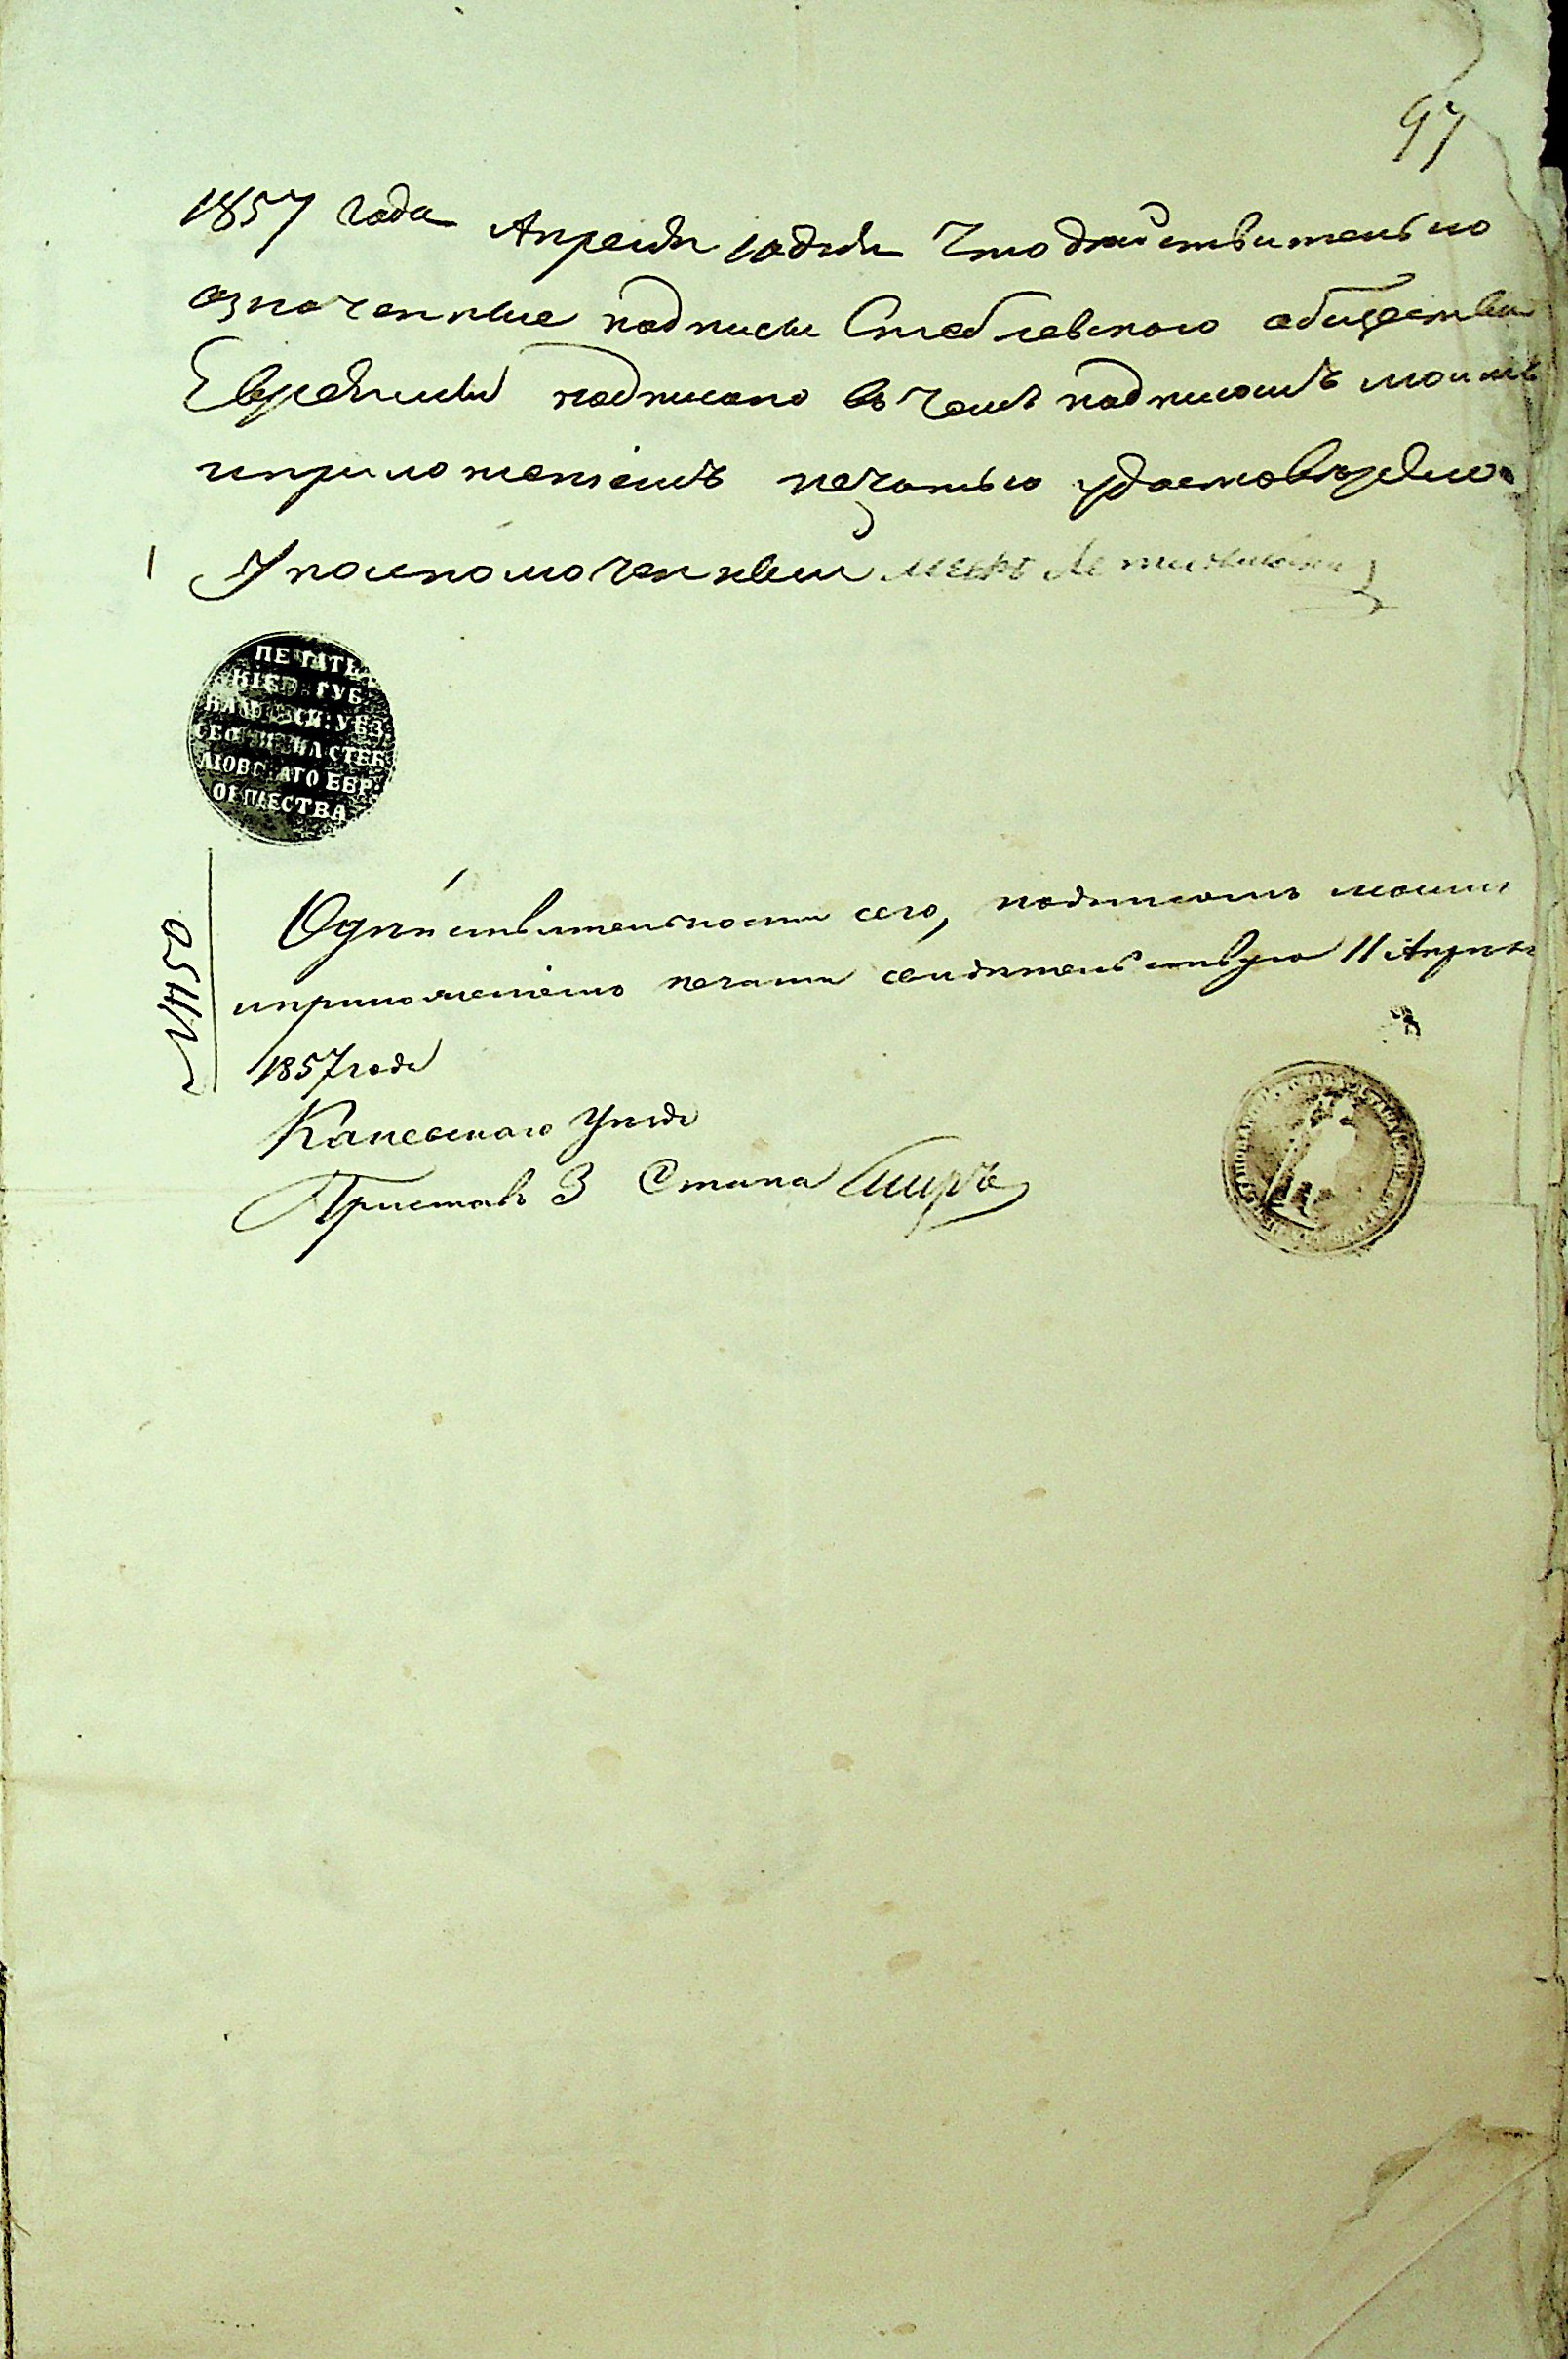 97
1857 года Апреля 10 дня Что действительно
означенные подписы Стеблевского общества
Евреями подписано въ чемъ подписомъ моимъ
и приложениемъ печатью удостовѣряю.
1 Уполномоченный
ПЕЧАТЬ
КІЕВ: ГУБ
КАНЕВСК: УѢЗ
СТЕБ
ЛІОВСКАГО ЕВР:
ОБЩЕСТВА
№ 450
О дѣйствительности сего, подписомъ моимъ
и приложениемъ печати свидѣтельствую 11 Апрѣля
1857 года
Каневского Уѣзда
Приставъ 3 Стана